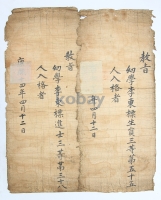 敎旨
幼學李東樑生員三等第五十五
人入格者
年四月十二日
敎旨
幼學李東樑進士三等第三十
人入格者
四年四月十二日
kobay